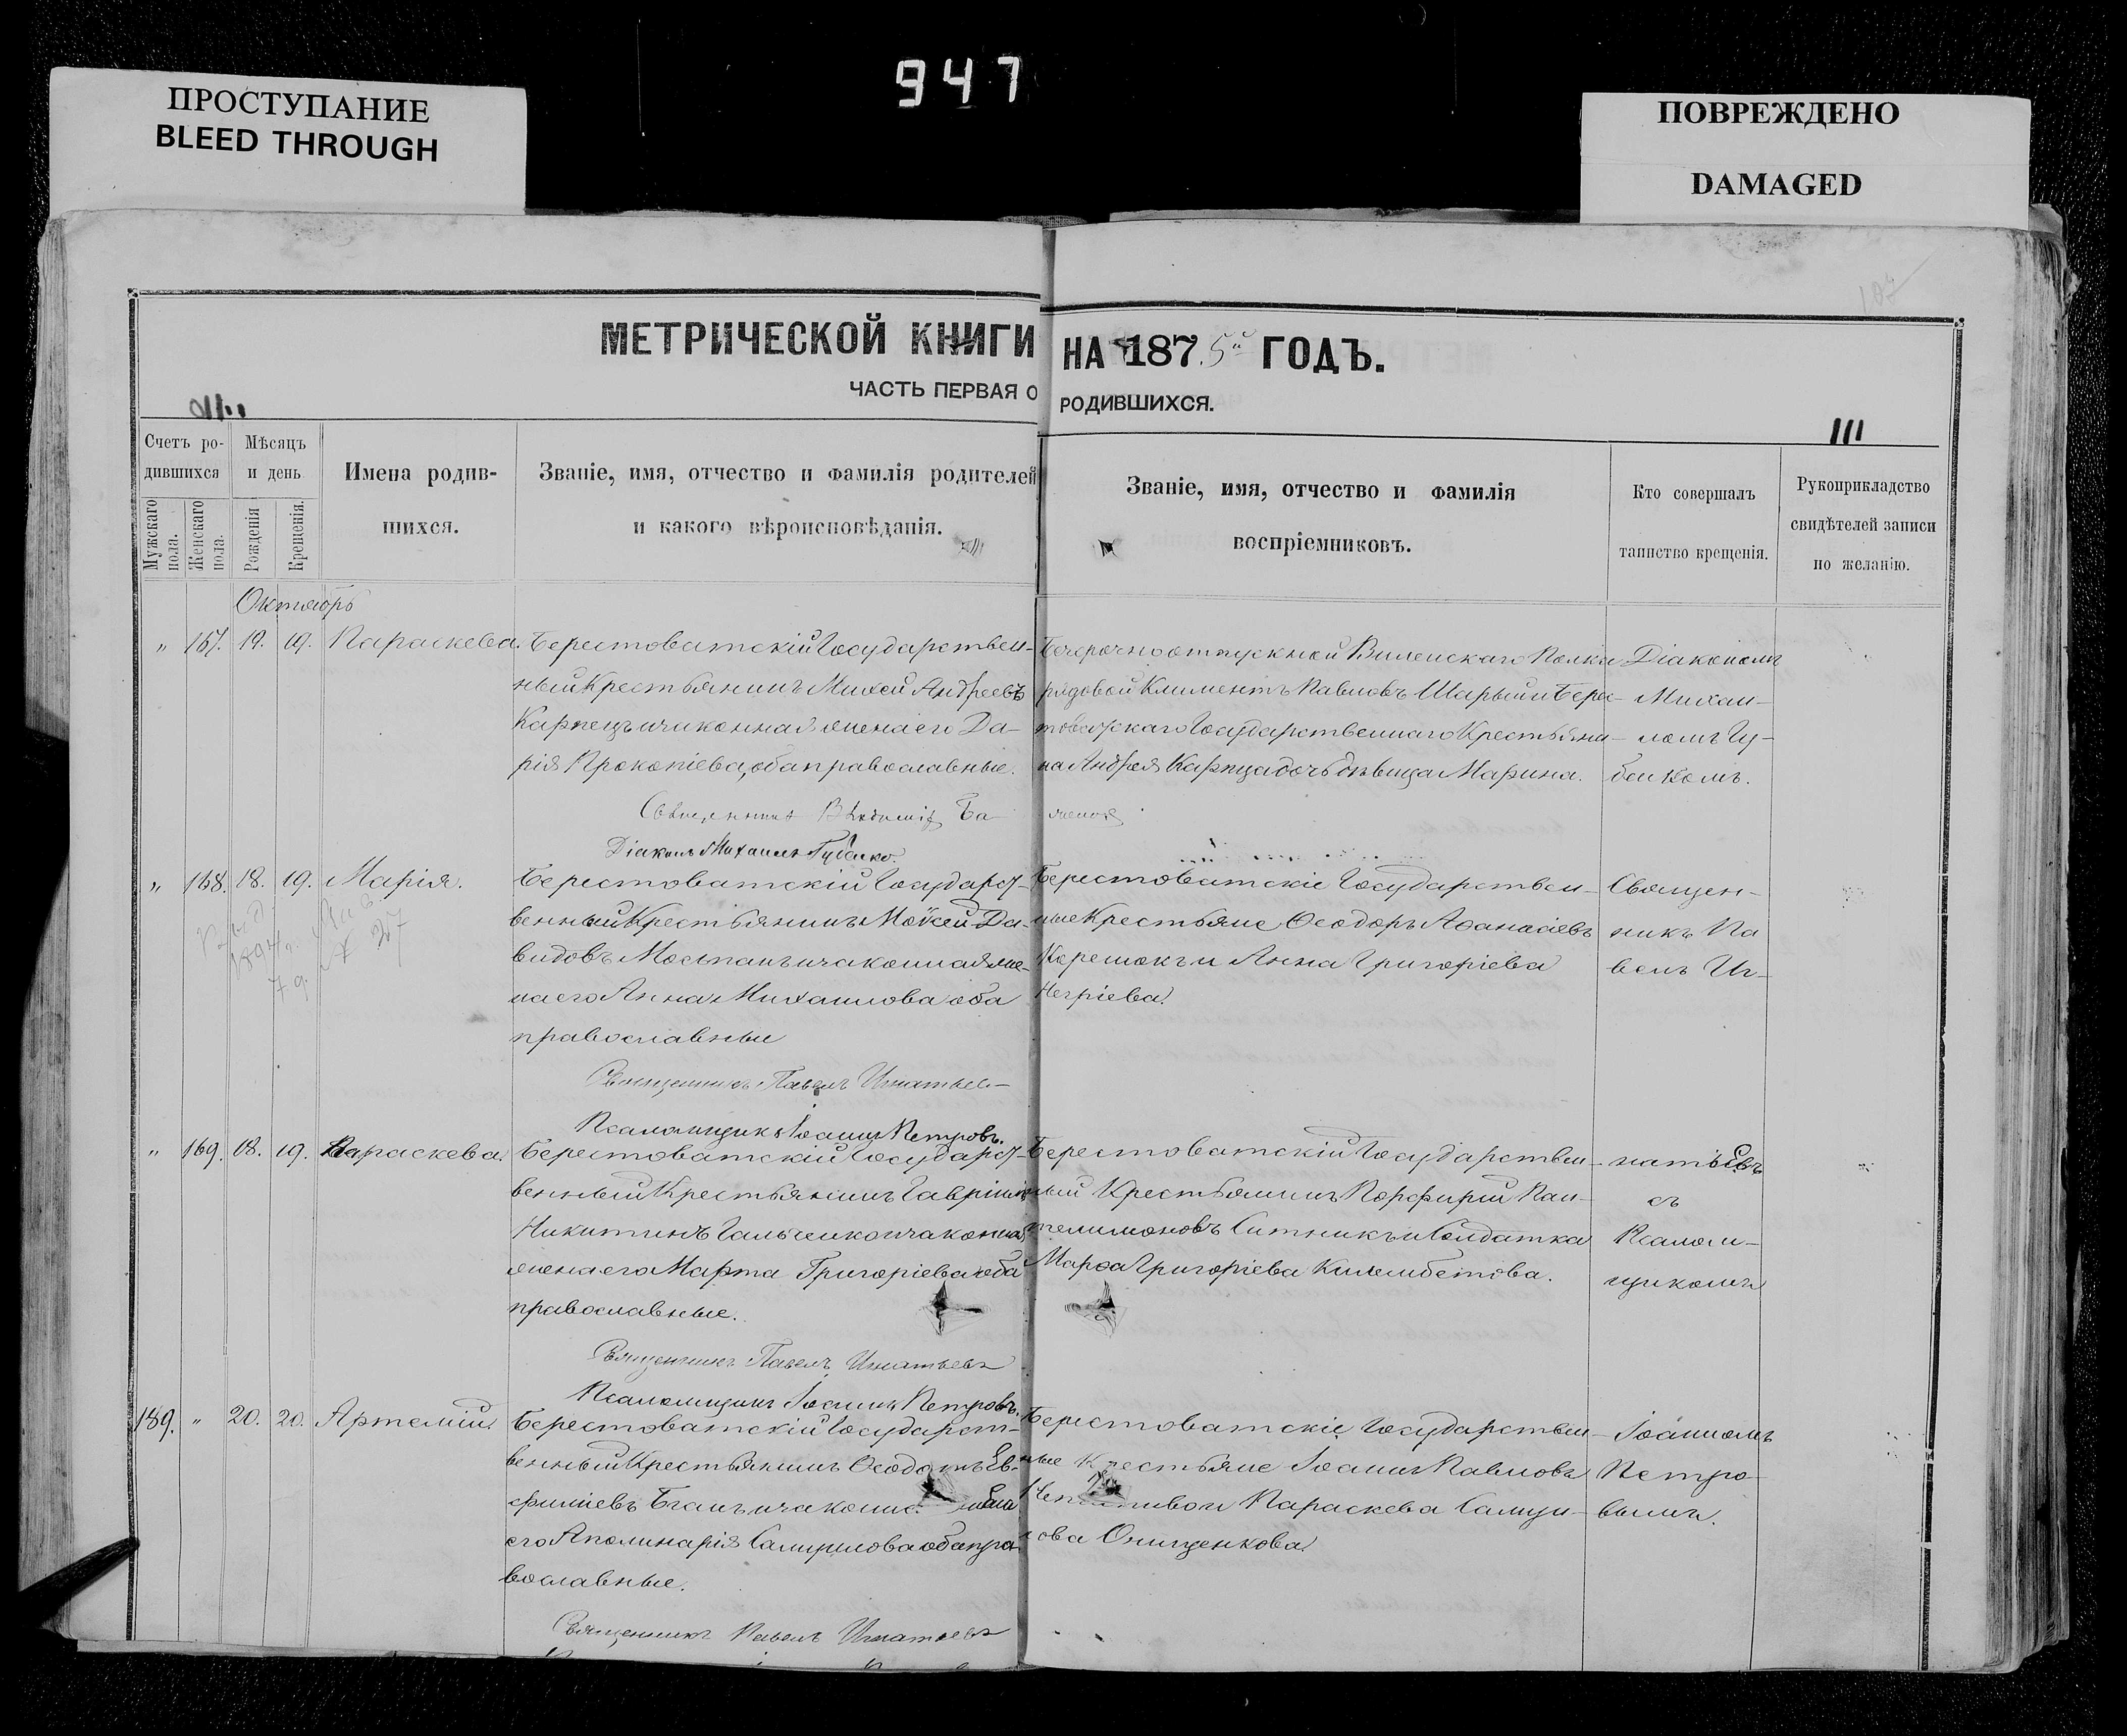 947
ПРОСТУПАНИЕ
BLEED THROUGH
ПОВРЕЖДЕНО
DAMAGED
МЕТРИЧЕСКОЙ КНИГИ НА 1875й ГОДЪ.
ЧАСТЬ ПЕРВАЯ О РОДИВШИХСЯ.
III
Счетъ ро-
дившихся
Мужскаго пола.
Женскаго пола.
Мѣсяцъ
и день
Рожденія
Крещенія.
Имена родив-
шихся.
Званіе, имя, отчество и фамилія родителей
и какого вѣроисповѣданія.
Званіе, имя, отчество и фамилія
воспріемниковъ.
Кто совершалъ
таинство крещенія.
Рукоприкладство
свидѣтелей записи
по желанію.
Октябрь
" 167. 19. 19. Параскева.
Берестоватскій Государствен-
ный Крестьянинъ Михей Андреевъ
Карпецъ и законная жена его Да-
рія Прокопіева, оба православные.
Діаконъ Михаилъ Губенко.
Безсрочноотпускной Виленскаго Полка
рядовой Климентъ Павловъ Шарый и Берес-
товатскаго Государственнаго Крестьяни-
на Андрея Карпца дочь дѣвица Марина.
Діакономъ
Михаи-
ломъ Гу-
бенкомъ.
" 168. 18. 19. Марія.
Берестоватскій Государст-
венный Крестьянинъ Мойсей Да-
видовъ Мосьпанъ и законная же-
на его Анна Михаилова оба
православные
Священникъ Павелъ Игнатьев
Псаломщикъ Іоаннъ Петровъ.
Берестоватскіе Государствен-
ные Крестьяне Ѳеодоръ Аѳанасіевъ
Корешокъ и Анна Григоріева
Негріева.
Священ-
никъ Па
велъ Иг-
" 169. 18. 19. Параскева.
Берестоватскій Государст-
венный Крестьянинъ Гавріилъ
Никитинъ Гальченко и законная
жена его Марта Григоріева оба
православные.
Священникъ Павелъ Игнатьевъ
Псаломщикъ Іоаннъ Петровъ.
Берестоватскій Государствен-
ный Крестьянинъ Порфирій Пан-
телимоновъ Ситникъ и Солдатка
Марѳа Григоріева Килимбетова.
натьЕвъ
съ
Псалом-
щикомъ
189. " 20. 20. Артемій.
Берестоватскій Государст-
венный Крестьянинъ Ѳеодотъ Ев-
фиміевъ Баганъ и законна жена
его Аполинарія Самуилова оба пра-
вославные.
Священникъ Павелъ Игнатьевъ
Берестоватскіе Государствен-
ные Крестьяне Іоаннъ Павловъ
и Параскева Самуи-
лова Онищенкова
Іоанномъ
Петро-
вымъ.